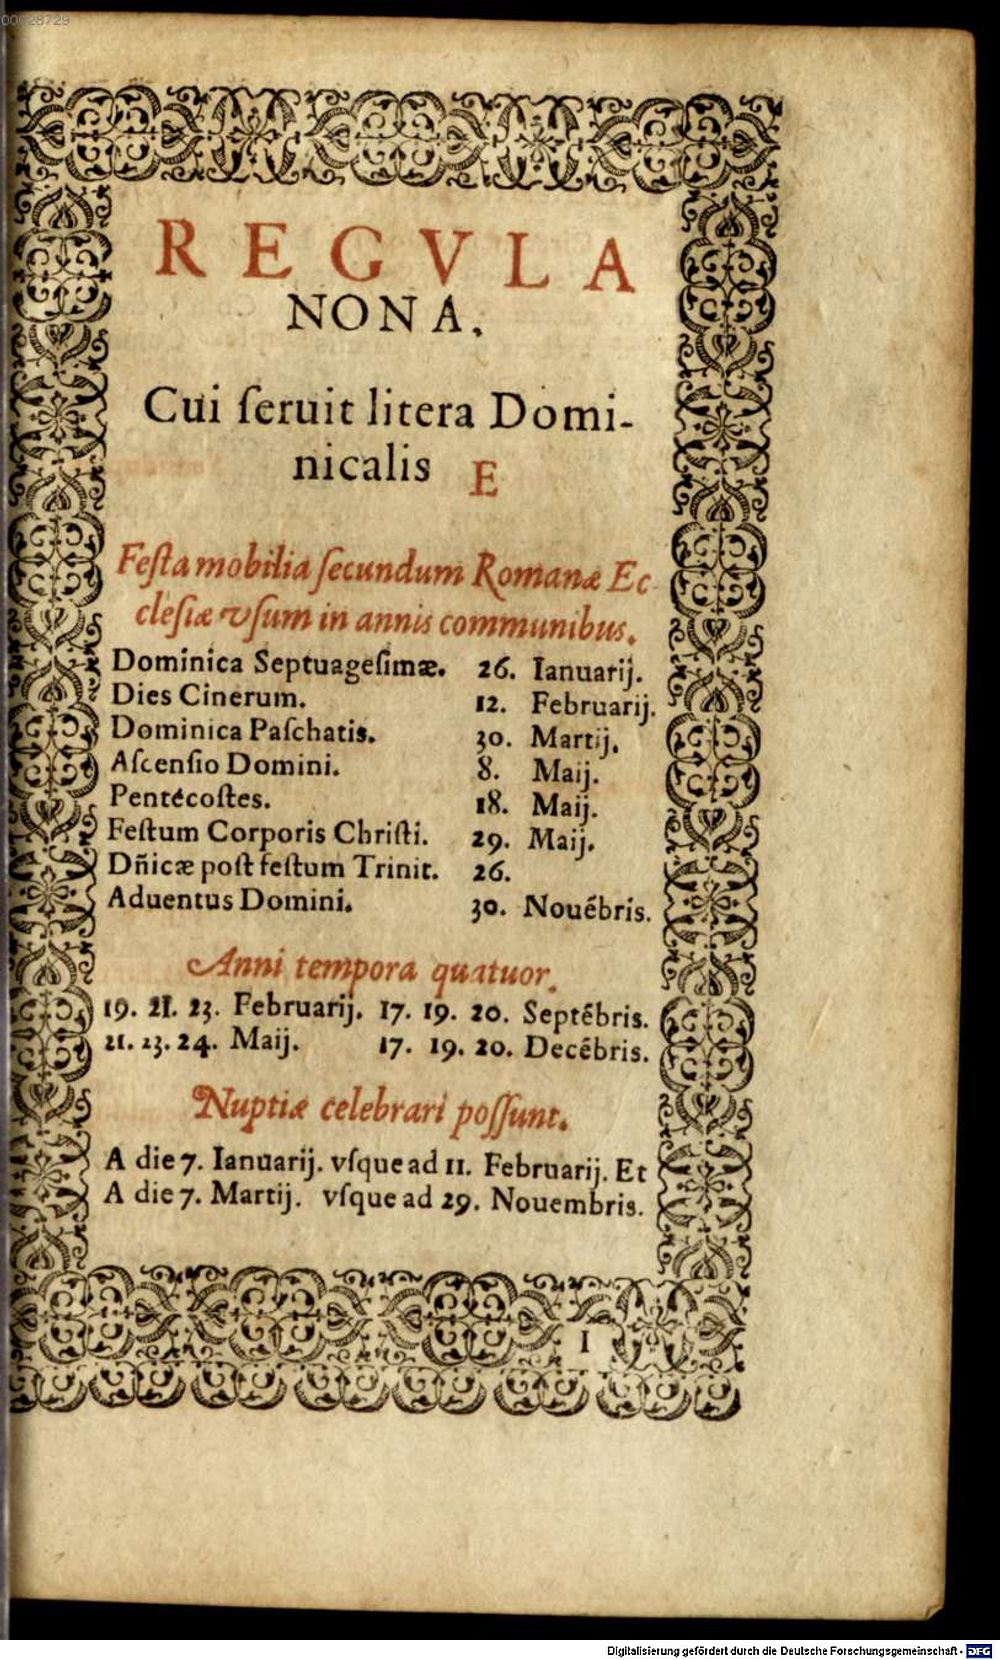 00028729
REGVLA
NONA.
Cui ſeruit litera Domi-
nicalis E
Feſta mobilia ſecundum Romanæ Ec
cleſiæ vſum in annis communibus.
Dominica Septuageſimæ. 26. Ianuarij.
Dies Cinerum. 12. Februarij.
Dominica Paſchatis. 30. Martij.
Aſcenſio Domini. 8. Maij.
Pentecoſtes. 18. Maij.
Feſtum Corporis Chriſti. 29. Maij.
Dñicæ poſt feſtum Trinit. 26.
Aduentus Domini. 30. Nouēbris.
Anni tempora quatuor.
19. 21. 23. Februarij. 17. 19. 20. Septēbris.
21. 23. 24. Maij. 17. 19. 20. Decēbris.
Nuptiæ celebrari poſſunt.
A die 7. Ianuarij. vſque ad 11. Februarij. Et
A die 7. Martij. vſque ad 29. Nouembris.
I
Digitalisierung gefördert durch die Deutsche Forschungsgemeinschaft - DFG